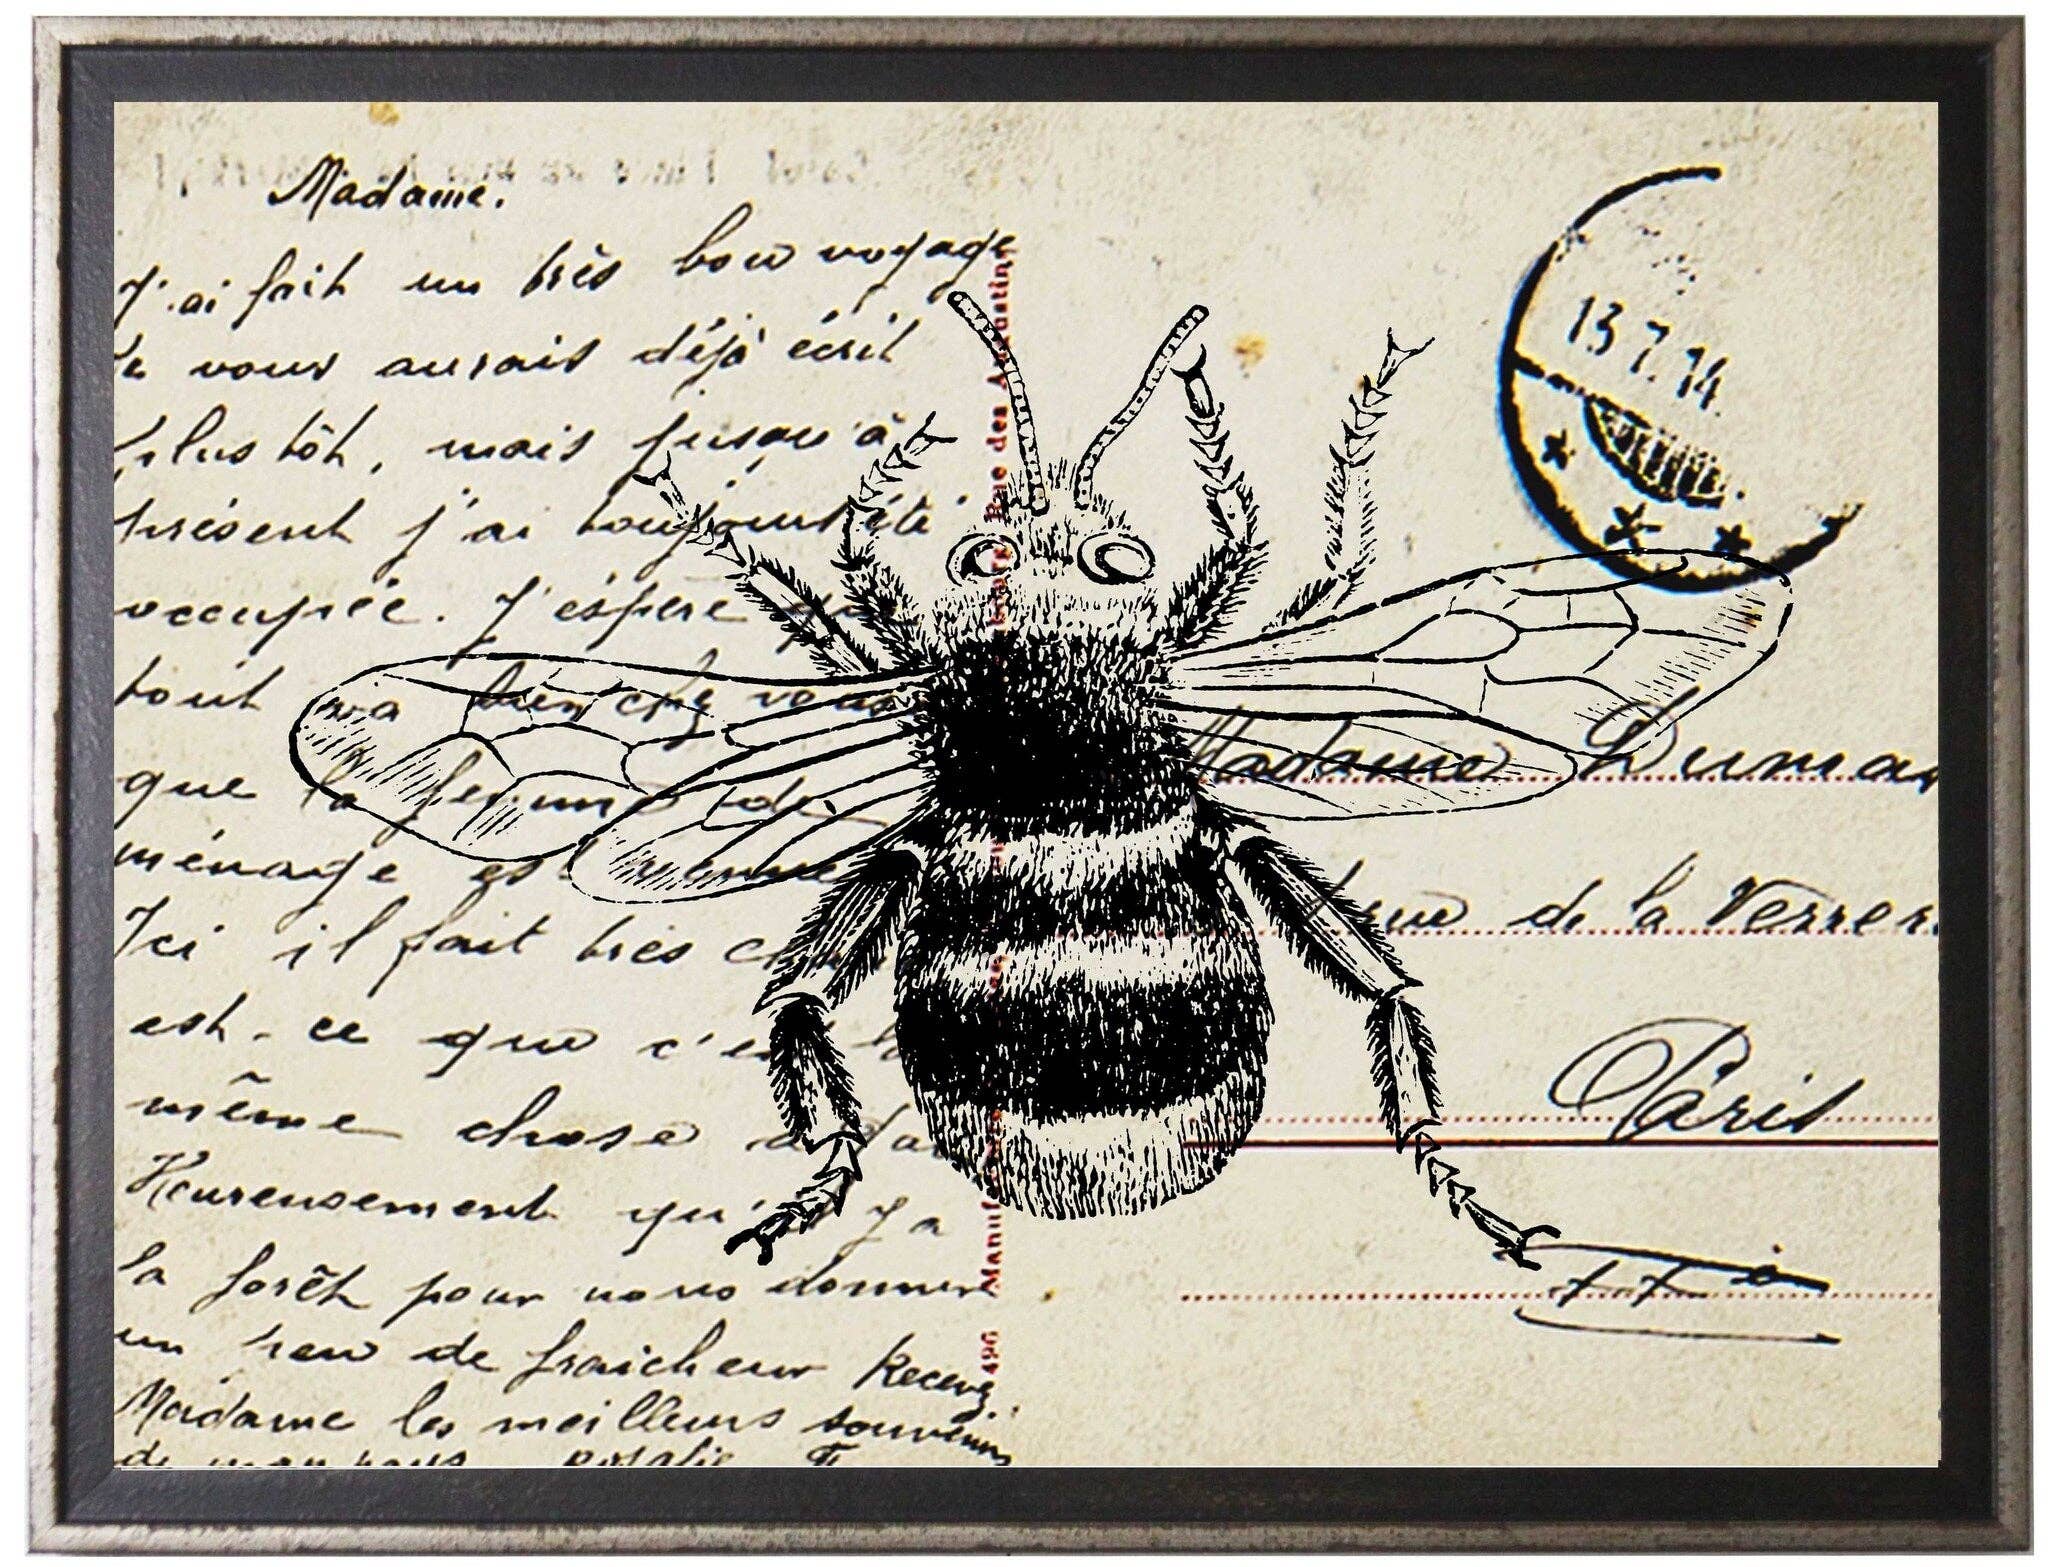 Madame.
J'ai fait un très bon voyage
Je vous aurais déjà écrit
plus tôt, mais jusqu'à
présent j'ai toujours été
occupée. J'espère que
tout va bien chez vous
que la femme de
ménage est
Ici il fait très
est-ce que c'est la
même chose à
Heureusement qu'il y a
la forêt pour nous donner
un peu de fraicheur Recevez
Madame les meilleurs souvenirs
de mon Rosalie
Rue des Augustins
Manuf
496
13 7.14
Madame Dumas
rue de la Verrer
Paris